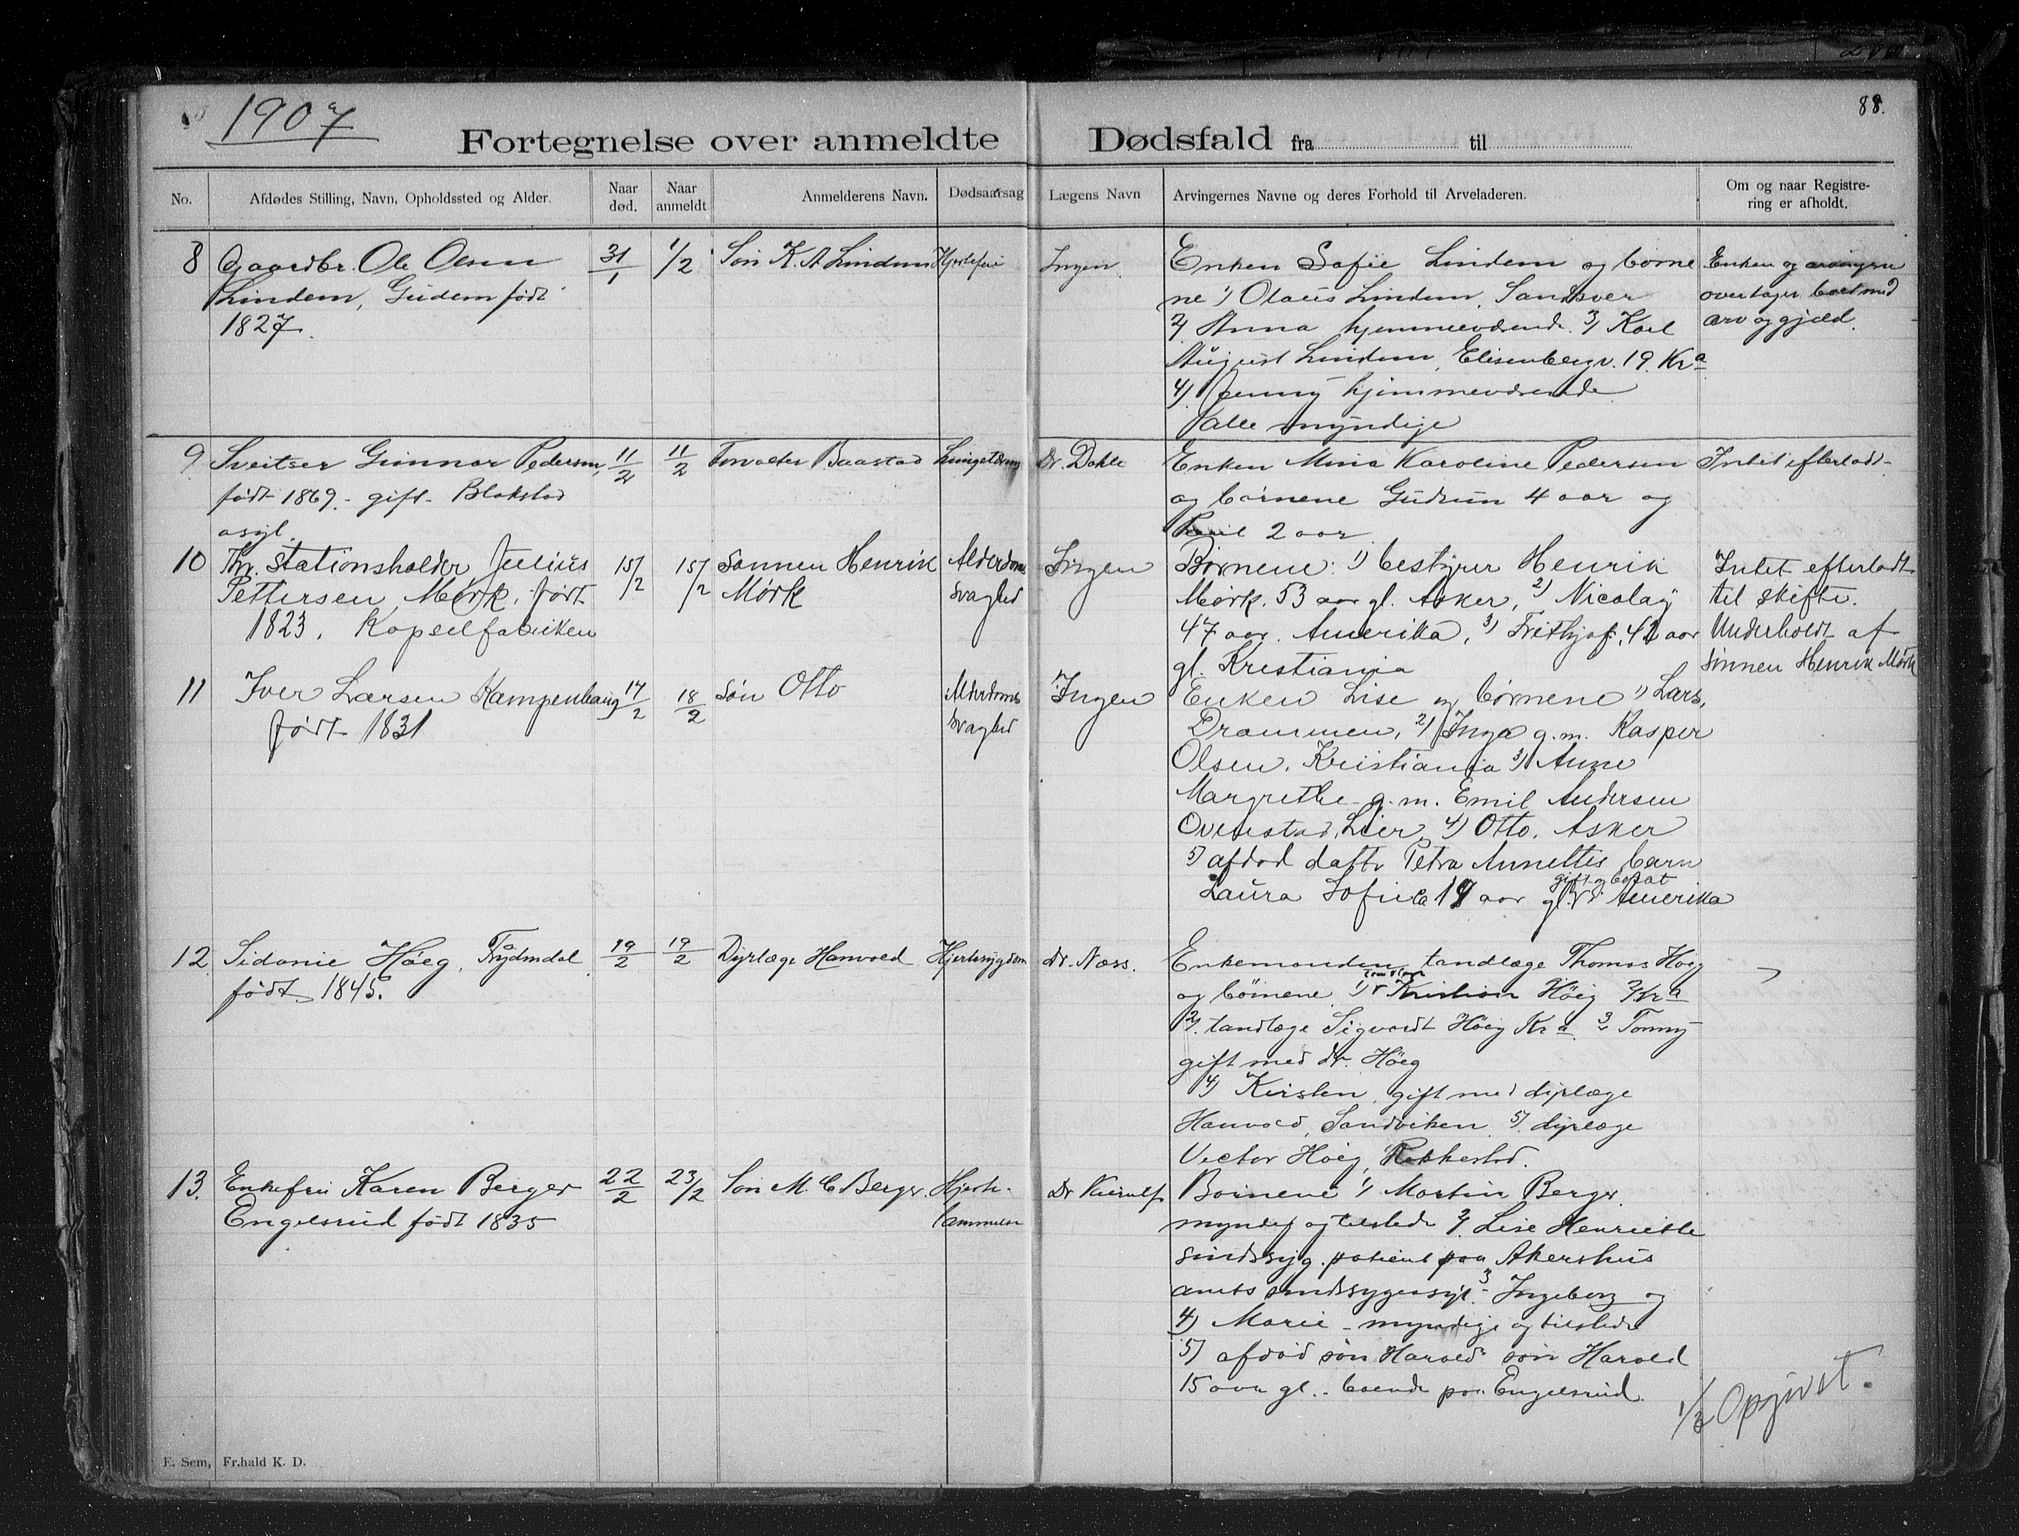 1907
88.
Fortegnelse over anmeldte Dødsfald fra til
No.
Afdødes Stilling, Navn, Opholdssted og Alder.
Naar død.
Naar anmeldt
Anmelderens Navn.
Dødsaarsag
Lægens Navn
Arvingernes Navne og deres Forhold til Arveladeren.
Om og naar Registre-
ring er afholdt.
8
Gaardbr. Ole Olsen
Lindem, Gudem født
1827.
31/1
1/2
Søn K. A Lindem
Hjertefeil
Ingen
Enken Sofie Lindem og børne
ne 1) Olaus Lindem, Sandsvær
2) Anna hjemmeværende 3) Karl
August Lindem, Elisenbergv. 19. Kra
4) Jenny hjemmeværende
alle myndige
Enken og arvingerne
overtager boet med
arv og gjæld.
9
Sveitser Gunnar Pedersen,
født 1869. gift. Blakstad
asyl.
11/2
11/2
Forvalter Baastad
Lungetæring
Dr. Dahle
Enken Mina Karoline Pedersen
og børnene Gudrun 4 aar og
2 aar
Intet efterladt
10
Fhv. Stationsholder Julius
Pettersen Mørk. født
1823, Kapselfabriken
15/2
15/2
Sønnen Henrik
Mørk
Alderdoms
svaghed
Ingen
Børnene: 1) bestyrer Henrik
Mørk. 53 aar gl. Asker, 2) Nicolay
47 aar. Amerika, 3) Frithjof, 42 aar
gl. Kristiania
Intet efterladt
til skifte.
Underholdt af
sønnen Henrik Mørk
11
Iver Larsen Kampenhaug
født 1831
17/2
18/2
Søn Otto
Alderdoms
svaghed
Ingen
Enken Lise og børnene 1) Lars,
Drammen, 2) Inga g. m. Kasper
Olsen, Kristiania 3) Anne
Margrethe g. m. Emil Andersen
Ovenstad, Lier, 4) Otto, Asker
5) afdød datt. Petra Annettes barn
gift og bosat
Laura Sofie 19 aar gl. Amerika
12
Sidonie Høeg, Frydendal
født 1845.
19/2
19/2
Dyrlæge Hanvold
Hjertesygdom
dr. Næss.
Enkemanden tandlæge Thomas Høeg
og børnene, 1) Kristian Høeg Kra
2) tandlæge Sigvardt Høeg Kra. 3 Tonny
gift med dr. Høeg
4) Kirsten, gift med dyrlæge
Hanvold, Sandviken 5) dyrlæge
Victor Høeg, Rakkestad.
13.
Enkefru Karen Berger
Engelsrud født 1835
22/2
23/2
Søn M. C Berger.
Hjerte-
lammelse
Dr Kierulf
Børnene 1) Martin Berger
myndig og tilstede 2) Lise Henriette
sindssyg. patient paa Akershus
amts sindssygeasyl. 3 Ingeborg og
4) Marie - myndige og tilstede
5) afdød søn Harolds søn Harold
15 aar gl. boende paa Engelsrud.
1/3 Opgivet.
F. Sem, Fr.hald K. D.